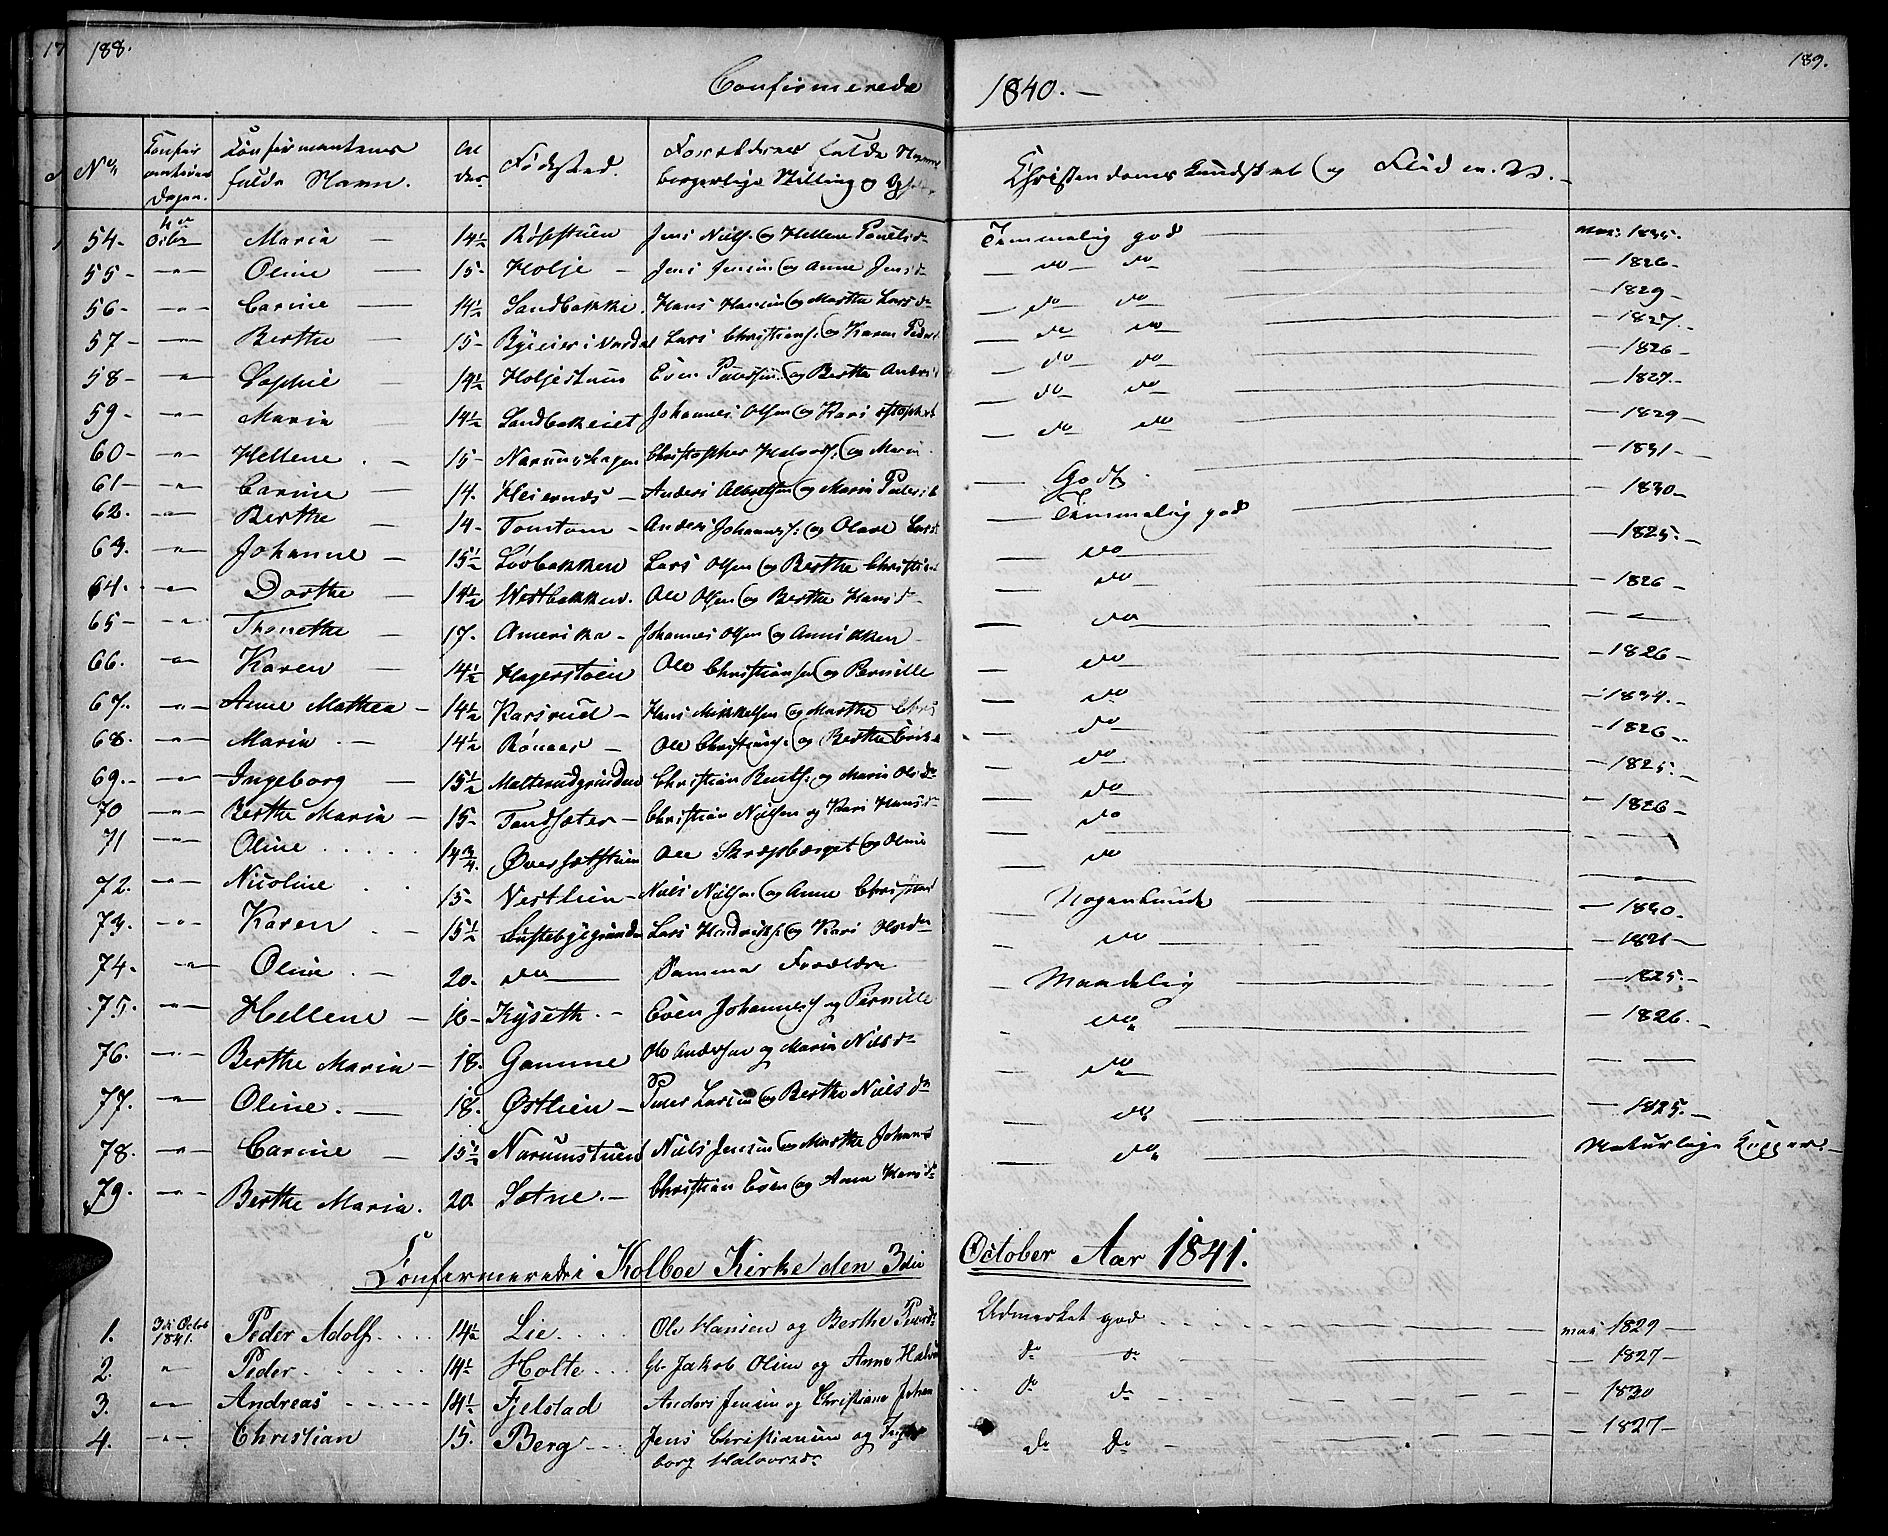 17 188.
189.
Confirmerede 1840.
No Confirmations Dagen. Confirmantens fulde Navn. Alder. Fødested. Forældrenes fulde Navne borgerlige Stilling og Christendoms Kundskab og Flid m. V.
54. 4de Octbr Maria 14½ Røsestuen Jens Niels. og Hellene Poulsdr Temmelig god 1835.
55 - " - Oline 15 - Holje - Jens Jensen og Anne Jensdr do do 1826 -
56 - " - Carine 14½ Sandbakke. Hans Hansen og Marthe Larsdr do do 1829 -
57 - " - Berthe 15 - Bye eier i Vardal Lars Christians. og Karen Peders do do 1827.
58 - " - Sophie 19½ Holjestuen Even Poulsen og Berthe Anders do do 1826 -
59 - " - Maria 14½ Sandbakeiet Johannes Olsen og Kari do do 1827.
60 - " - Hellene 15 - Narumshagen Christopher Halvors. og Marie do do 1829 -
61 - " - Carine 14. Heiernæs - Anders Albretsen og Maria Pedersd Godt. 1831 -
62. - " - Berthe 14 - Tomtom - Anders Johanness. og Olave Larsd Temmelig god 1830 -
63. - " - Johanne 15½ Lövbakken Lars Olsen og Berthe Christiansd do 1825.
64. - " - Dorthe 14½ Westbakken. Ole Olsen og Berthe Hansdr do 1826 -
65 - " - Thonethe 17. Amerika - Johannes Olsen og Annikken do - " -
66. - " - Karen 14½ Hagerstøen Ole Christiansen og Pernille do 1826 -
67. - " - Anne Mathea 14½ Karsrud - Hans Mikkelsen og Marthe Chris do 1834.
68. - " - Maria 14½ Rønaas - Ole Christians. og Berthe Eriks do 1826 -
69. - " - Ingeborg 15½ Malterudgrinden Christian Bents. og Maria Olsdr do 1825.
70 - " - Berthe Maria 15 - Tandsæter - Christian Nielsen og Kari Hansdr do 1826 -
71 - " - Oline 14¾ Øversætstuen Ole Skræpberget og Oline do - " -
72. - " - Nicoline 15 - Vestlien - Niels Nielsen og Anne Christiansd Nogenlunde - " -
73. - " - Karen 15½ Lustebyegrinden Lars Hendriks. og Kari Olsdr do 1830.
74. - " - Oline 20. do Samme Forældre Maadelig 1821 -
75. - " - Hellene 16 - Kyseth. - Even Johanness og Pernille do 1825.
76. - " - Berthe Maria 18. Gamme Ole Andersen og Maria Nielsdr do 1826.
77. - " - Oline. 18. Østlien - Peder Larsen og Berthe Nielsdr do - " -
78. - " - Carine 15½ Narumstuen Niels Jensen og Marthe Johans do 1825.
79. - " - Berthe Maria. 20 Sætne. - Christian Even og Anne Hansdr Naturlige Kopper
Confirmerede i Kolboe Kirke den 3die October Aar 1841.
1. 3die Octbr 1841. Peder Adolf 14½ Lie Ole Hansen og Berthe Pedersdr Udmerket god 1829 -
2. " Peder 14½ Holte Gb. Jakob Olsen og Anne Halvors do do 1827 -
3. - " - Andreas 14½ Fjelstad Anders Jensen og Christiane Johan do do 1830
4. - " - Christian 15. Berg Jens Christiansen og Ingeborg Halvorsdr do do 1827 -